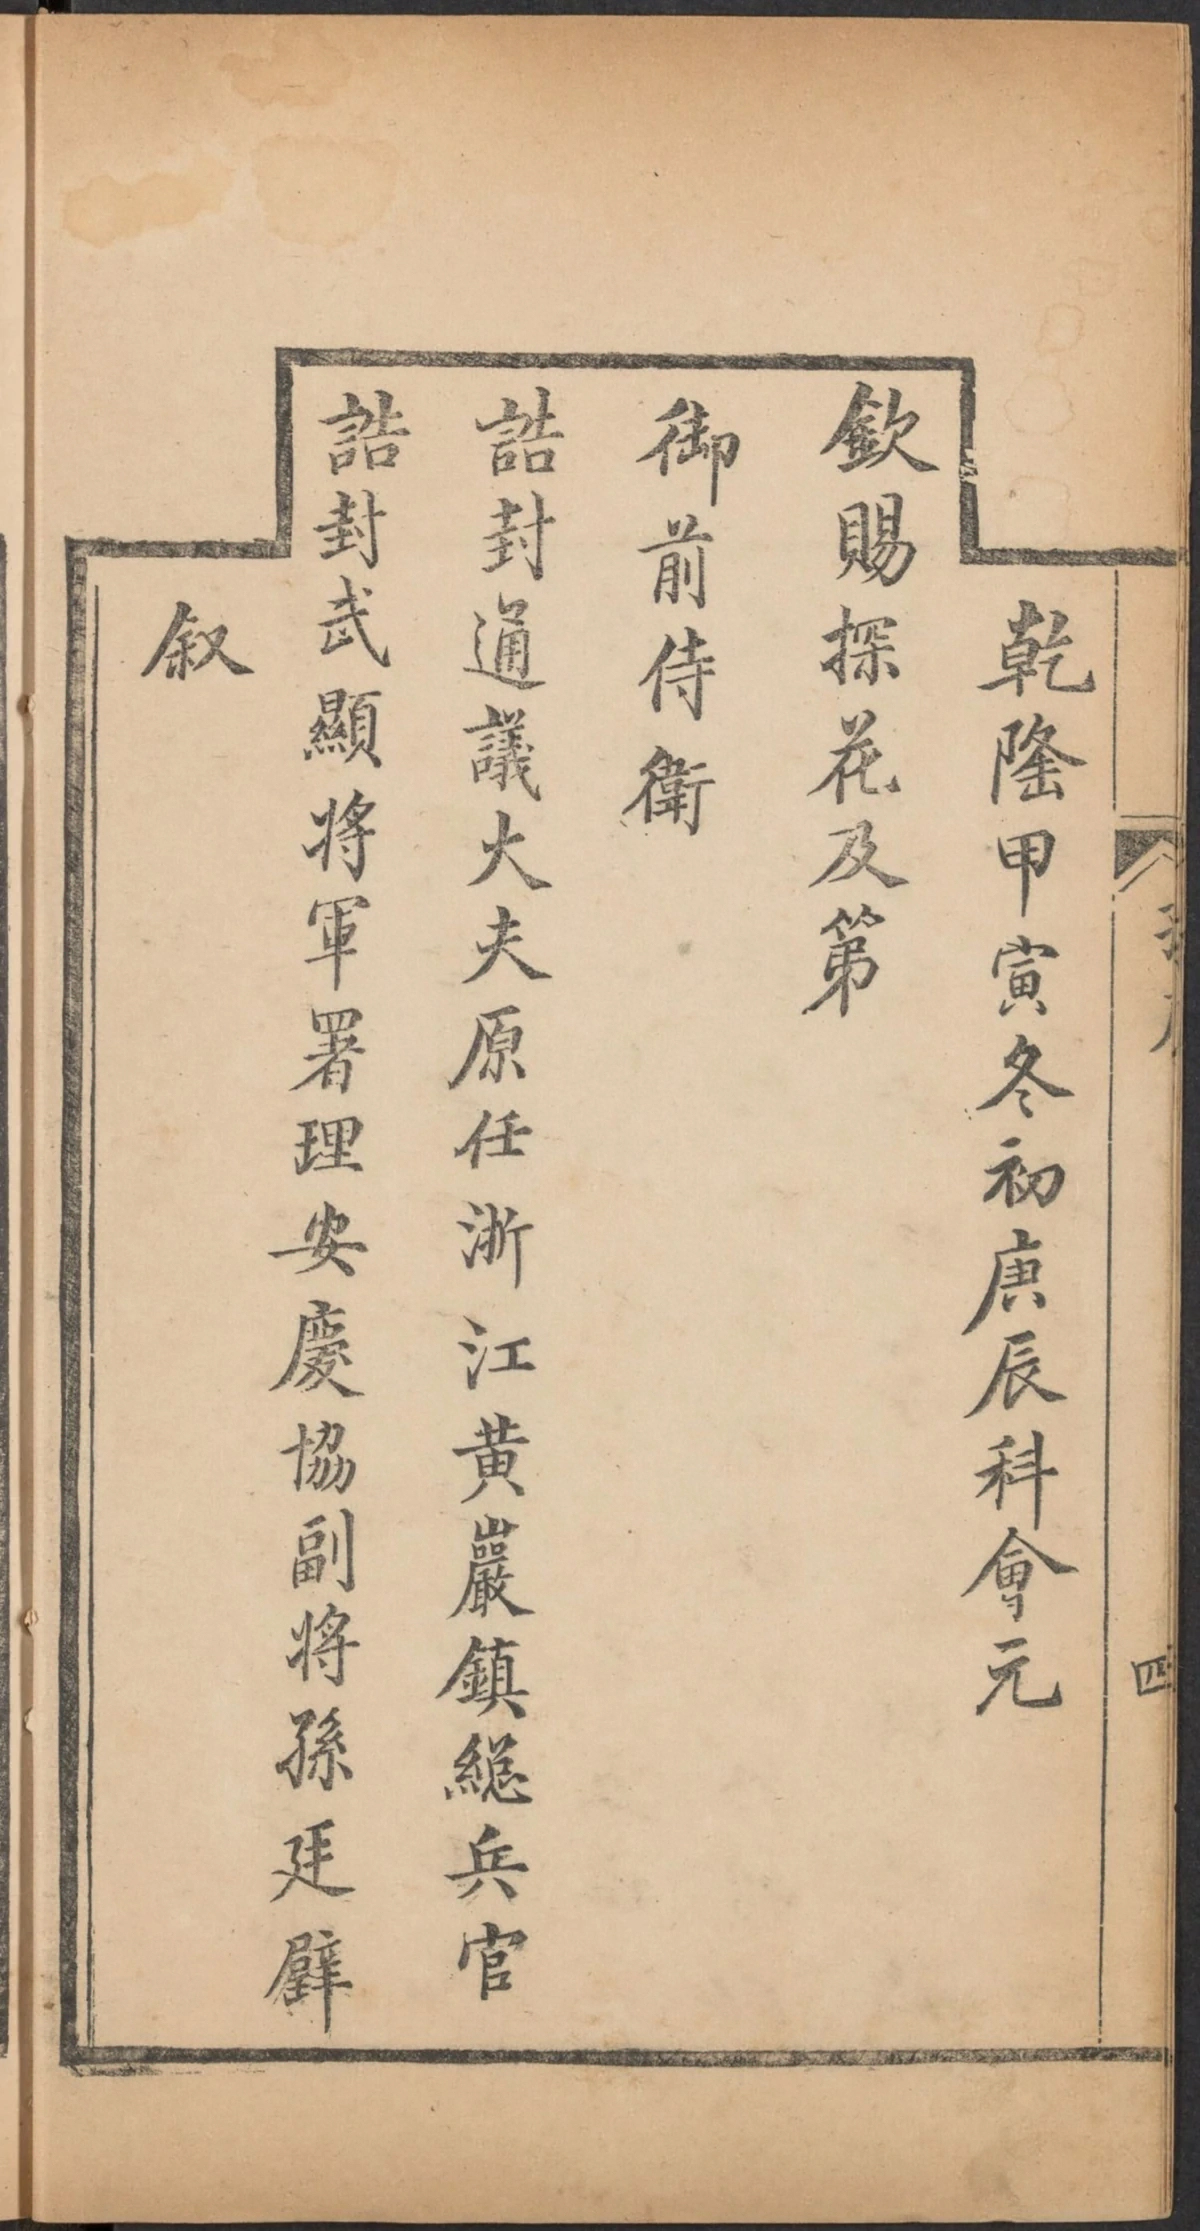 乾隆甲寅冬初庚辰科會元
欽賜探花及第
御前侍衛
誥封通議大夫原任浙江黃巖鎮總兵官
誥封武顯將軍署理安慶協副将孫廷璧
叙
四